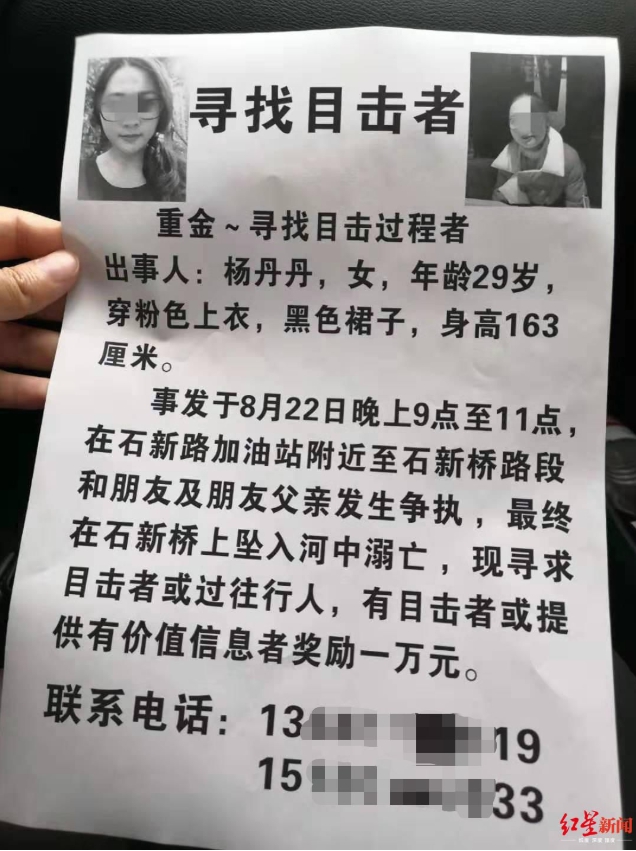 寻找目击者
重金~寻找目击过程者
出事人：杨丹丹，女，年龄29岁，
穿粉色上衣，黑色裙子，身高163
厘米。
事发于8月22日晚上9点至11点，
在石新路加油站附近至石新桥路段
和朋友及朋友父亲发生争执，最终
在石新桥上坠入河中溺亡，现寻求
目击者或过往行人，有目击者或提
供有价值信息者奖励一万元。
联系电话：13 19
15 33
红星新闻